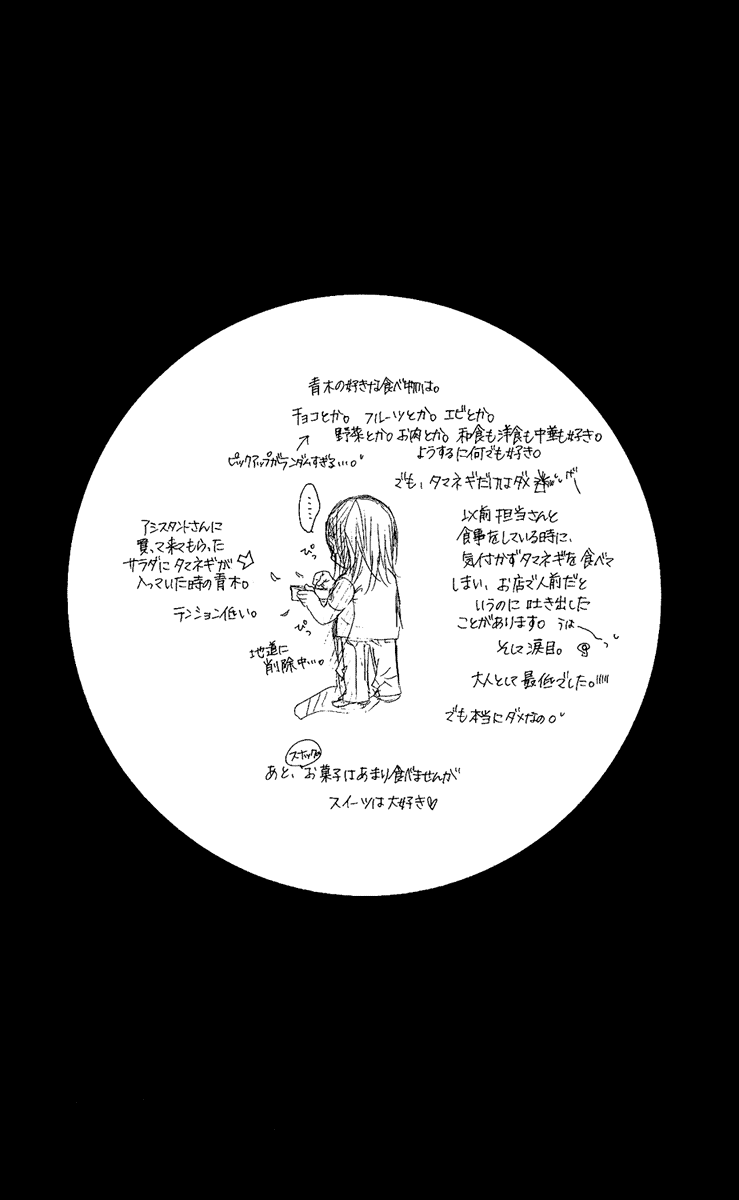 青木の好きな食べ物は。
チョコとか。フルーツとか。エビとか。
野菜とか。お肉とか。和食も洋食も中華も好き。
ようするに何でも好き。
ピックアップがランダムすぎる…。
でも、タマネギだけはダメ
以前担当さんと
食事をしている時に、
気付かずタマネギを食べて
しまい、お店で人前だと
いうのに吐き出した
ことがあります。うは
そして涙目。
大人として最低でした。
でも本当にダメなの。
アシスタントさんに
買って来てもらった
サラダにタマネギが
入っていた時の青木。
テンション低い。
……
ぴっ
ぴっ
地道に
削除中…。
スナック
あと、お菓子はあまり食べませんが
スイーツは大好き♡